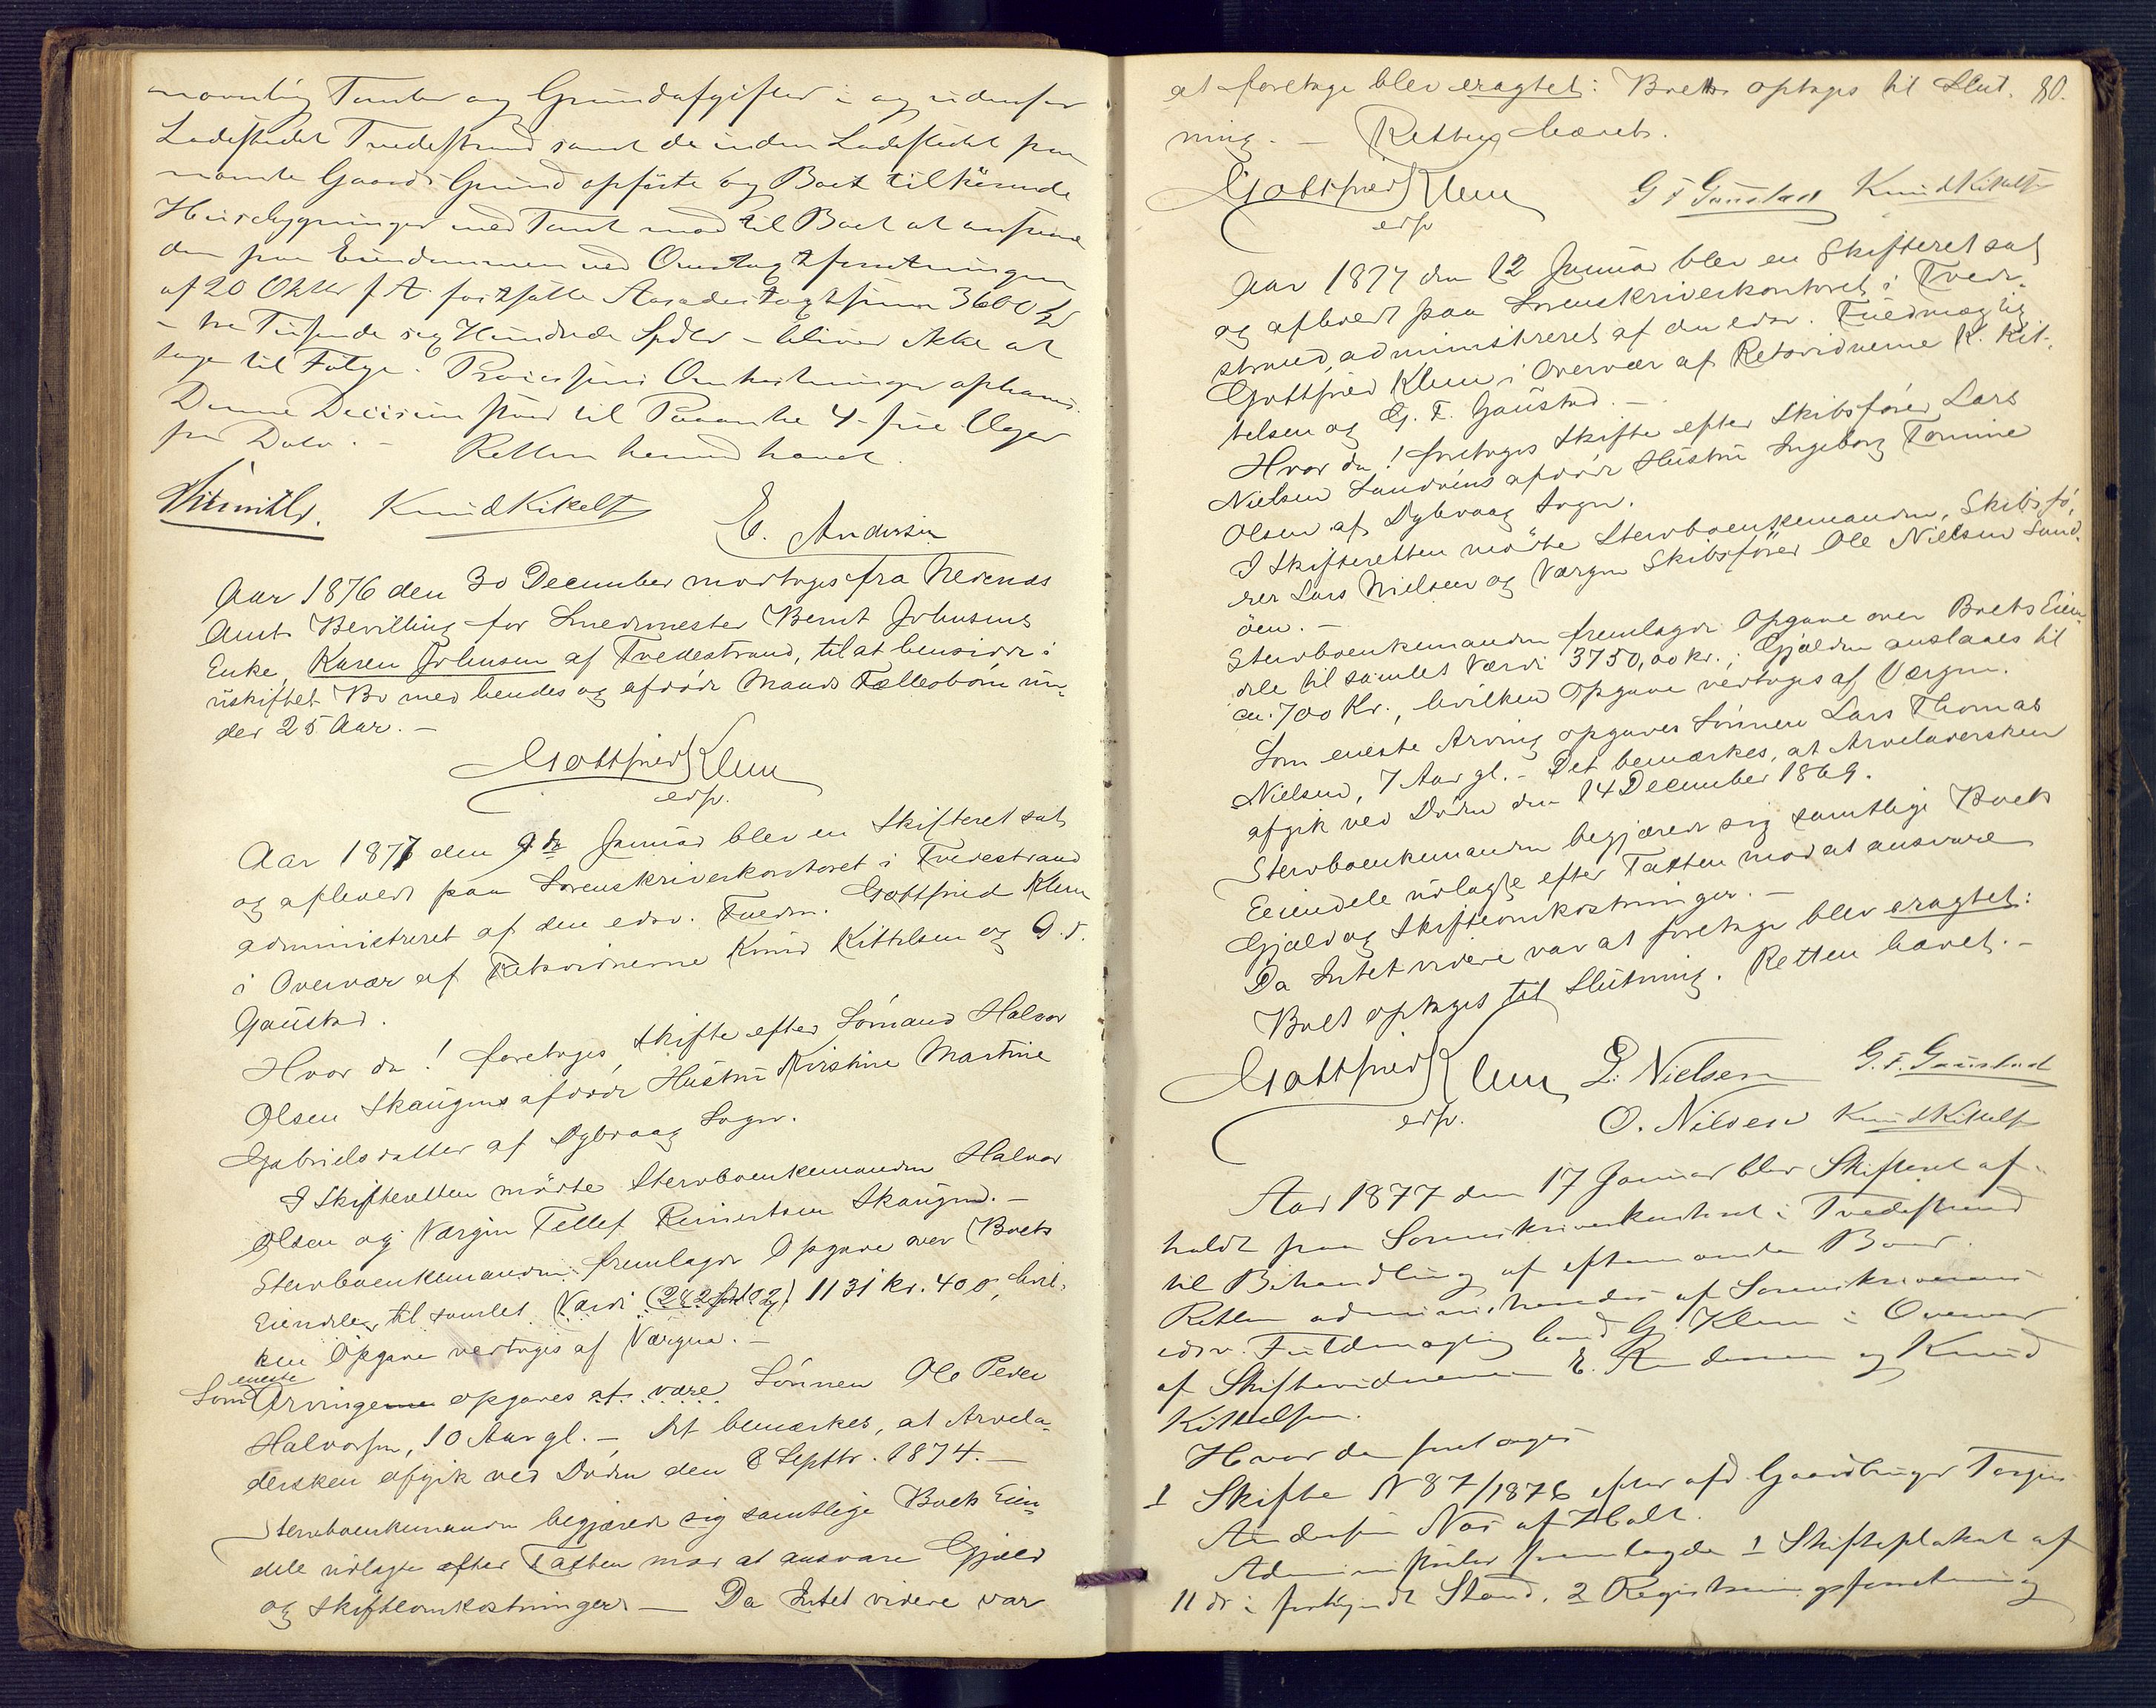 Tomter og Grundafgifter i og udenfor
Ladestedet Tvedestrand samt de inden Ladestedet paa
nævnte Gaards Grund opførte og Boet tilhørende
Huusbygninger med Tomt mod til Boet at
den paa Eiendommen ved Omtaxtforretningen
af 20 Oktbr f. A. fastsatte 3600 Spd
– tre Tusinde sex Hundrede Spdlr – bliver ikke at
tage til Følge. Omkostninger ophæves.
Denne Decision staar til Paaanke 4 – fire Uger
fra Dato. – Retten hermed hævet.
Knud Kittelsen
E. Andersen
Aar 1876 den 30 December modtoges fra Nedenæs
Amt Bevilling for Smedmester Bernt Johnsens
Enke, Karen Johnsen af Tvedestrand, til at hensidde i
uskiftet Bo med hendes og afdøde Mands Fællesbørn un-
der 25 Aar. –
Gottfried Klem
edsv.
Aar 1877 den 9de Januar blev en Skifteret sat
og afholdt paa Sorenskriverkontoret i Tvedestrand
administreret af den edsv. Fuldm. Gottfried Klem
i Overvær af Retsvidnerne Knud Kittelsen og G. F.
Gaustad.
Hvor da! foretoges Skifte efter Sømand Halvor
Olsen Skaugens afdøde Hustru Kirstine Martine
Gabrielsdatter af Dybvaag Sogn.
I Skifteretten mødte Stervboenkemanden Halvor
Olsen og Værgen Tellef Reiniertsen Skaugen. –
Stervboenkemanden fremlagde Opgave over Boets
Eiendele til samlet Værdi (282 Spd 102 s) 1131 kr. 40 ø, hvil-
ken Opgave vedtoges af Værgen. –
eneste
Som Arvingerne opgaves at være Sønnen Ole Peder
Halvorsen, 10 Aar gl. – Det bemærkes, at Arvela-
dersken afgik ved Døden den 8 Septbr. 1874. –
Stervboenkemanden begjærede sig samtlige Boets Eien-
dele udlagte efter Taxten mod at ansvare Gjæld
og Skifteomkostninger – Da Intet videre var
at foretage blev eragtet: Boet optages til Slut- 80.
ning. – Retten hævet.
Gottfried Klem
edsv
G F Gaustad Knud Kittelsen
Aar 1877 den 12 Januar blev en Skifteret sat
og afholdt paa Sorenskriverkontoret i Tvede-
strand, administreret af den edsv. Fuldmægtig
Gottfried Klem i Overvær af Retsvidnerne K. Kit-
telsen og G. F. Gaustad. –
Hvor da! foretoges Skifte efter Skibsfører Lars
Nielsen Sandøens afdøde Hustru Ingeborg Tomine
Olsen af Dybvaag Sogn.
I Skifteretten mødte Stervboenkemanden, Skibsfø-
rer Lars Nielsen og Værgen Skibsfører Ole Nielsen Sand-
øen. –
Stervboenkemanden fremlagde Opgave over Boets Eien-
dele til samlet Værdi 3750,00 kr.; Gjælden anslaaes til
ca. 700 Kr., hvilken Opgave vedtoges af Værgen.
Som eneste Arving opgaves Sønnen Lars Thomas
Nielsen, 7 Aar gl. – Det bemærkes, at Arveladersken
afgik ved Døden den 14 December 1869.
Stervboenkemanden begjærede sig samtlige Boets
Eiendele udlagte efter Taxten mod at ansvare
Gjæld og Skifteomkostninger. –
Da Intet videre var at foretage blev eragtet:
Boet optages til Slutning. Retten hævet. –
Gottfried Klem L. Nielsen G. F. Gaustad
edsv. O. Nilsen Knud Kittelsen
Aar 1877 den 17 Januar blev Skifteret af-
holdt paa Sorenskriverkontoret i Tvedestrand
til Behandling af efternævnte Boer.
Retten administreredes af Sorenskriverens
edsv. Fuldmægtig G. Klem i Overvær
af Skiftevidnerne E. Andersen og Knud
Kittelsen.
Hvor da foretoges
1 Skifte N 87/1876 efter afd. Gaardbruger Torjus
Andersen Næs af Holt.
Administrator fremlagde 1 Skifteplakat af
11 ds i forkyndt Stand, 2 Registreringsforretning